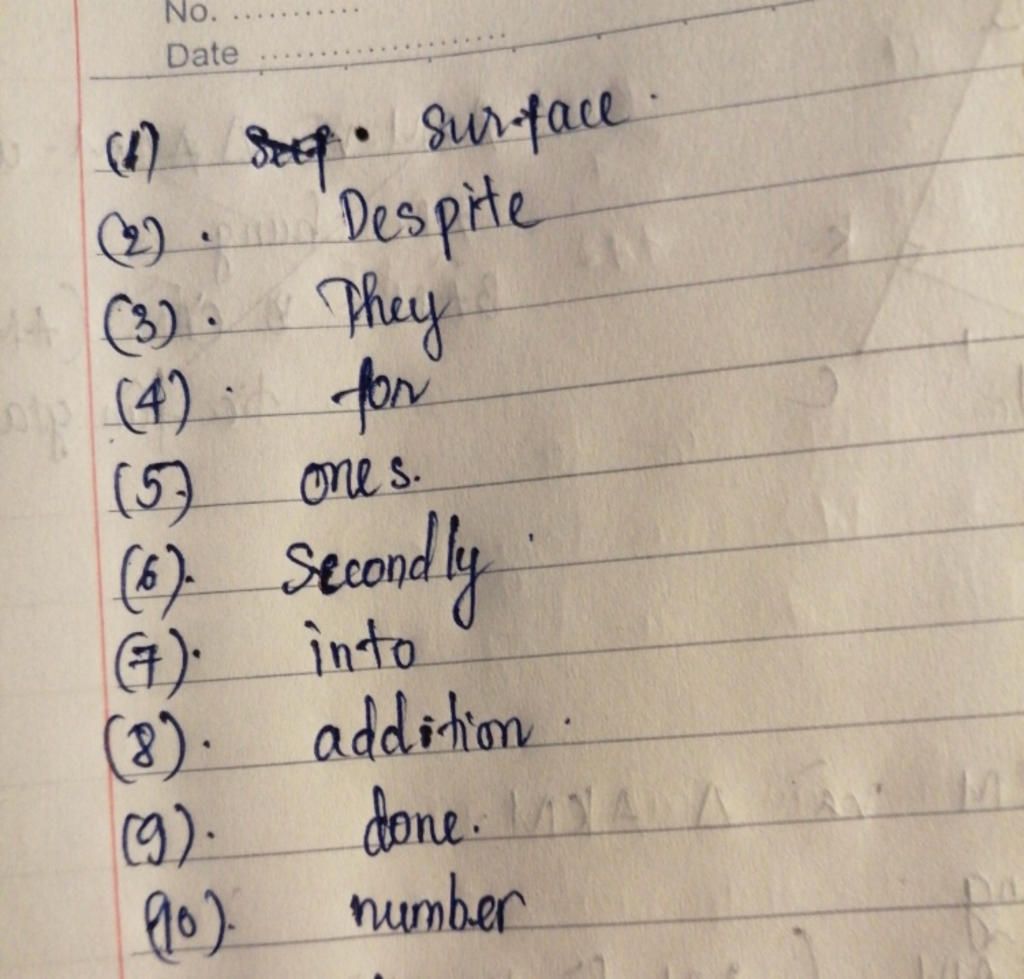 No. ............
Date ........................
(1) surface.
(2). Despite
(3). They
(4). for
(5) ones.
(6). Secondly.
(7). into
(8). addition.
(9). done.
(10). number